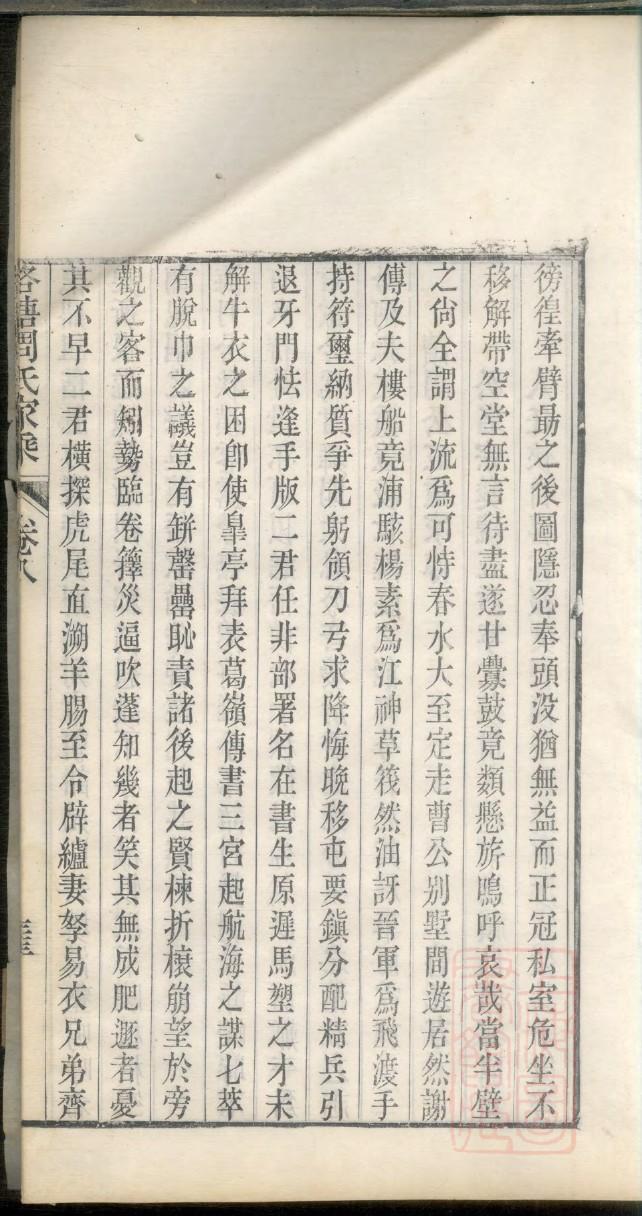 徬徨牽臂最之後圖隱忍奉頭没猶無益而正冠私室危坐不
移解帶空堂無言待盡遂甘釁鼓竟類懸旂嗚呼哀哉當半壁
之尙全謂上流爲可恃春水大至定走曹公别墅閒遊居然謝
傅及夫樓船竟浦駭楊素爲江神草筏然油訝晉軍爲飛渡手
持符璽納質爭先躬領刀弓求降悔晚移屯要鎭分配精兵引
退牙門怯逢手版二君任非部署名在書生原遲馬塑之才未
解牛衣之困卽使臯亭拜表葛嶺傳書三宮起航海之謀七萃
有脫巾之議豈有缾罄罍恥責諸後起之賢棟折榱崩望於旁
觀之客而矧勢臨卷籜災逼吹蓬知幾者笑其無成肥遯者憂
其不早二君橫探虎尾直溯羊腸至令辟纑妻孥易衣兄弟齊
洛塘周氏家乘
卷八